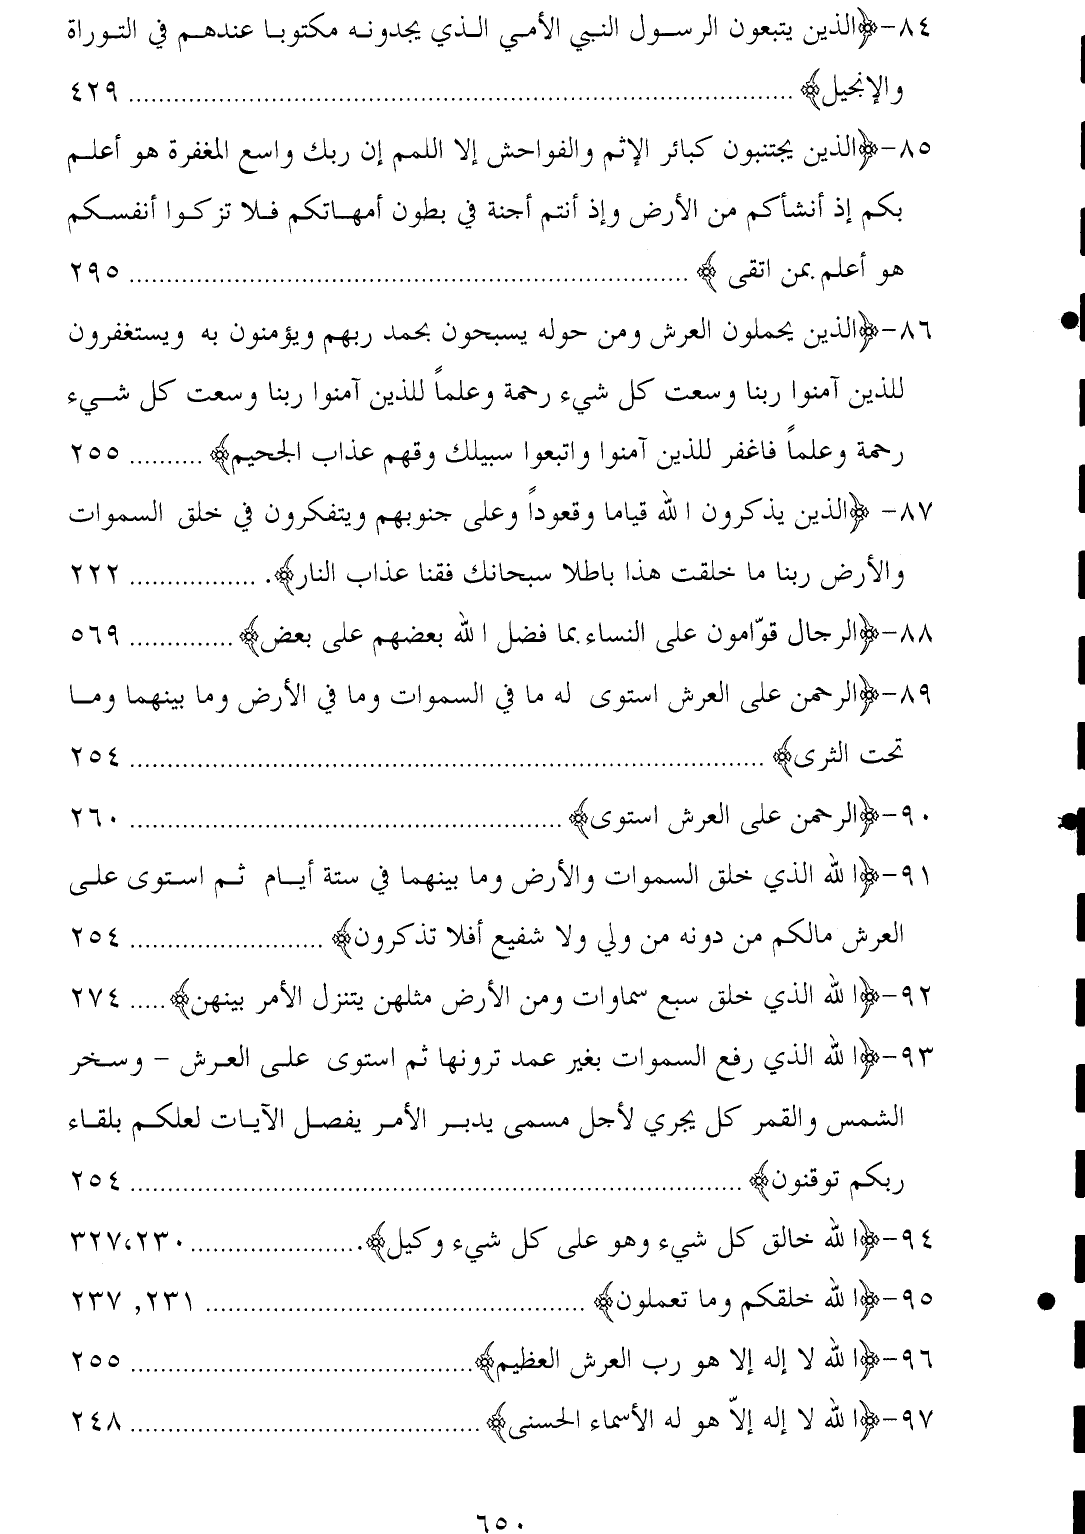 ٨٤-﴿الذين يتبعون الرسول النبي الأمي الذي يجدونه مكتوبا عندهم في التوراة
والإنجيل﴾ ........ ٤٢٩
٨٥-﴿الذين يجتنبون كبائر الإثم والفواحش إلا اللمم إن ربك واسع المغفرة هو أعلم
بكم إذ أنشأكم من الأرض وإذ أنتم أجنة في بطون أمهاتكم فلا تزكوا أنفسكم
هو أعلم بمن اتقى ﴾ ........ ٢٩٥
٨٦-﴿الذين يحملون العرش ومن حوله يسبحون بحمد ربهم ويؤمنون به ويستغفرون
للذين آمنوا ربنا وسعت كل شيء رحمة وعلماً للذين آمنوا ربنا وسعت كل شيء
رحمة وعلماً فاغفر للذين آمنوا واتبعوا سبيلك وقهم عذاب الجحيم﴾ ........ ٢٥٥
٨٧- ﴿الذين يذكرون الله قياما وقعوداً وعلى جنوبهم ويتفكرون في خلق السموات
والأرض ربنا ما خلقت هذا باطلا سبحانك فقنا عذاب النار﴾. ........ ٢٢٢
٨٨-﴿الرجال قوّامون على النساء بما فضل الله بعضهم على بعض﴾ ........ ٥٦٩
٨٩-﴿الرحمن على العرش استوى له ما في السموات وما في الأرض وما بينهما وما
تحت الثرى﴾ ........ ٢٥٤
٩٠-﴿الرحمن على العرش استوى﴾ ........ ٢٦٠
٩١-﴿الله الذي خلق السموات والأرض وما بينهما في ستة أيام ثم استوى على
العرش مالكم من دونه من ولي ولا شفيع أفلا تذكرون﴾ ........ ٢٥٤
٩٢-﴿الله الذي خلق سبع سماوات ومن الأرض مثلهن يتنزل الأمر بينهن﴾ ..... ٢٧٤
٩٣-﴿الله الذي رفع السموات بغير عمد ترونها ثم استوى على العرش – وسخر
الشمس والقمر كل يجري لأجل مسمى يدبر الأمر يفصل الآيات لعلكم بلقاء
ربكم توقنون﴾ ........ ٢٥٤
٩٤-﴿الله خالق كل شيء وهو على كل شيء وكيل﴾. ........ ٢٣٠،٣٢٧
٩٥-﴿الله خلقكم وما تعملون﴾ ........ ٢٣١, ٢٣٧
٩٦-﴿الله لا إله إلا هو رب العرش العظيم﴾ ........ ٢٥٥
٩٧-﴿الله لا إله إلاّ هو له الأسماء الحسنى﴾ ........ ٢٤٨
٦٥٠